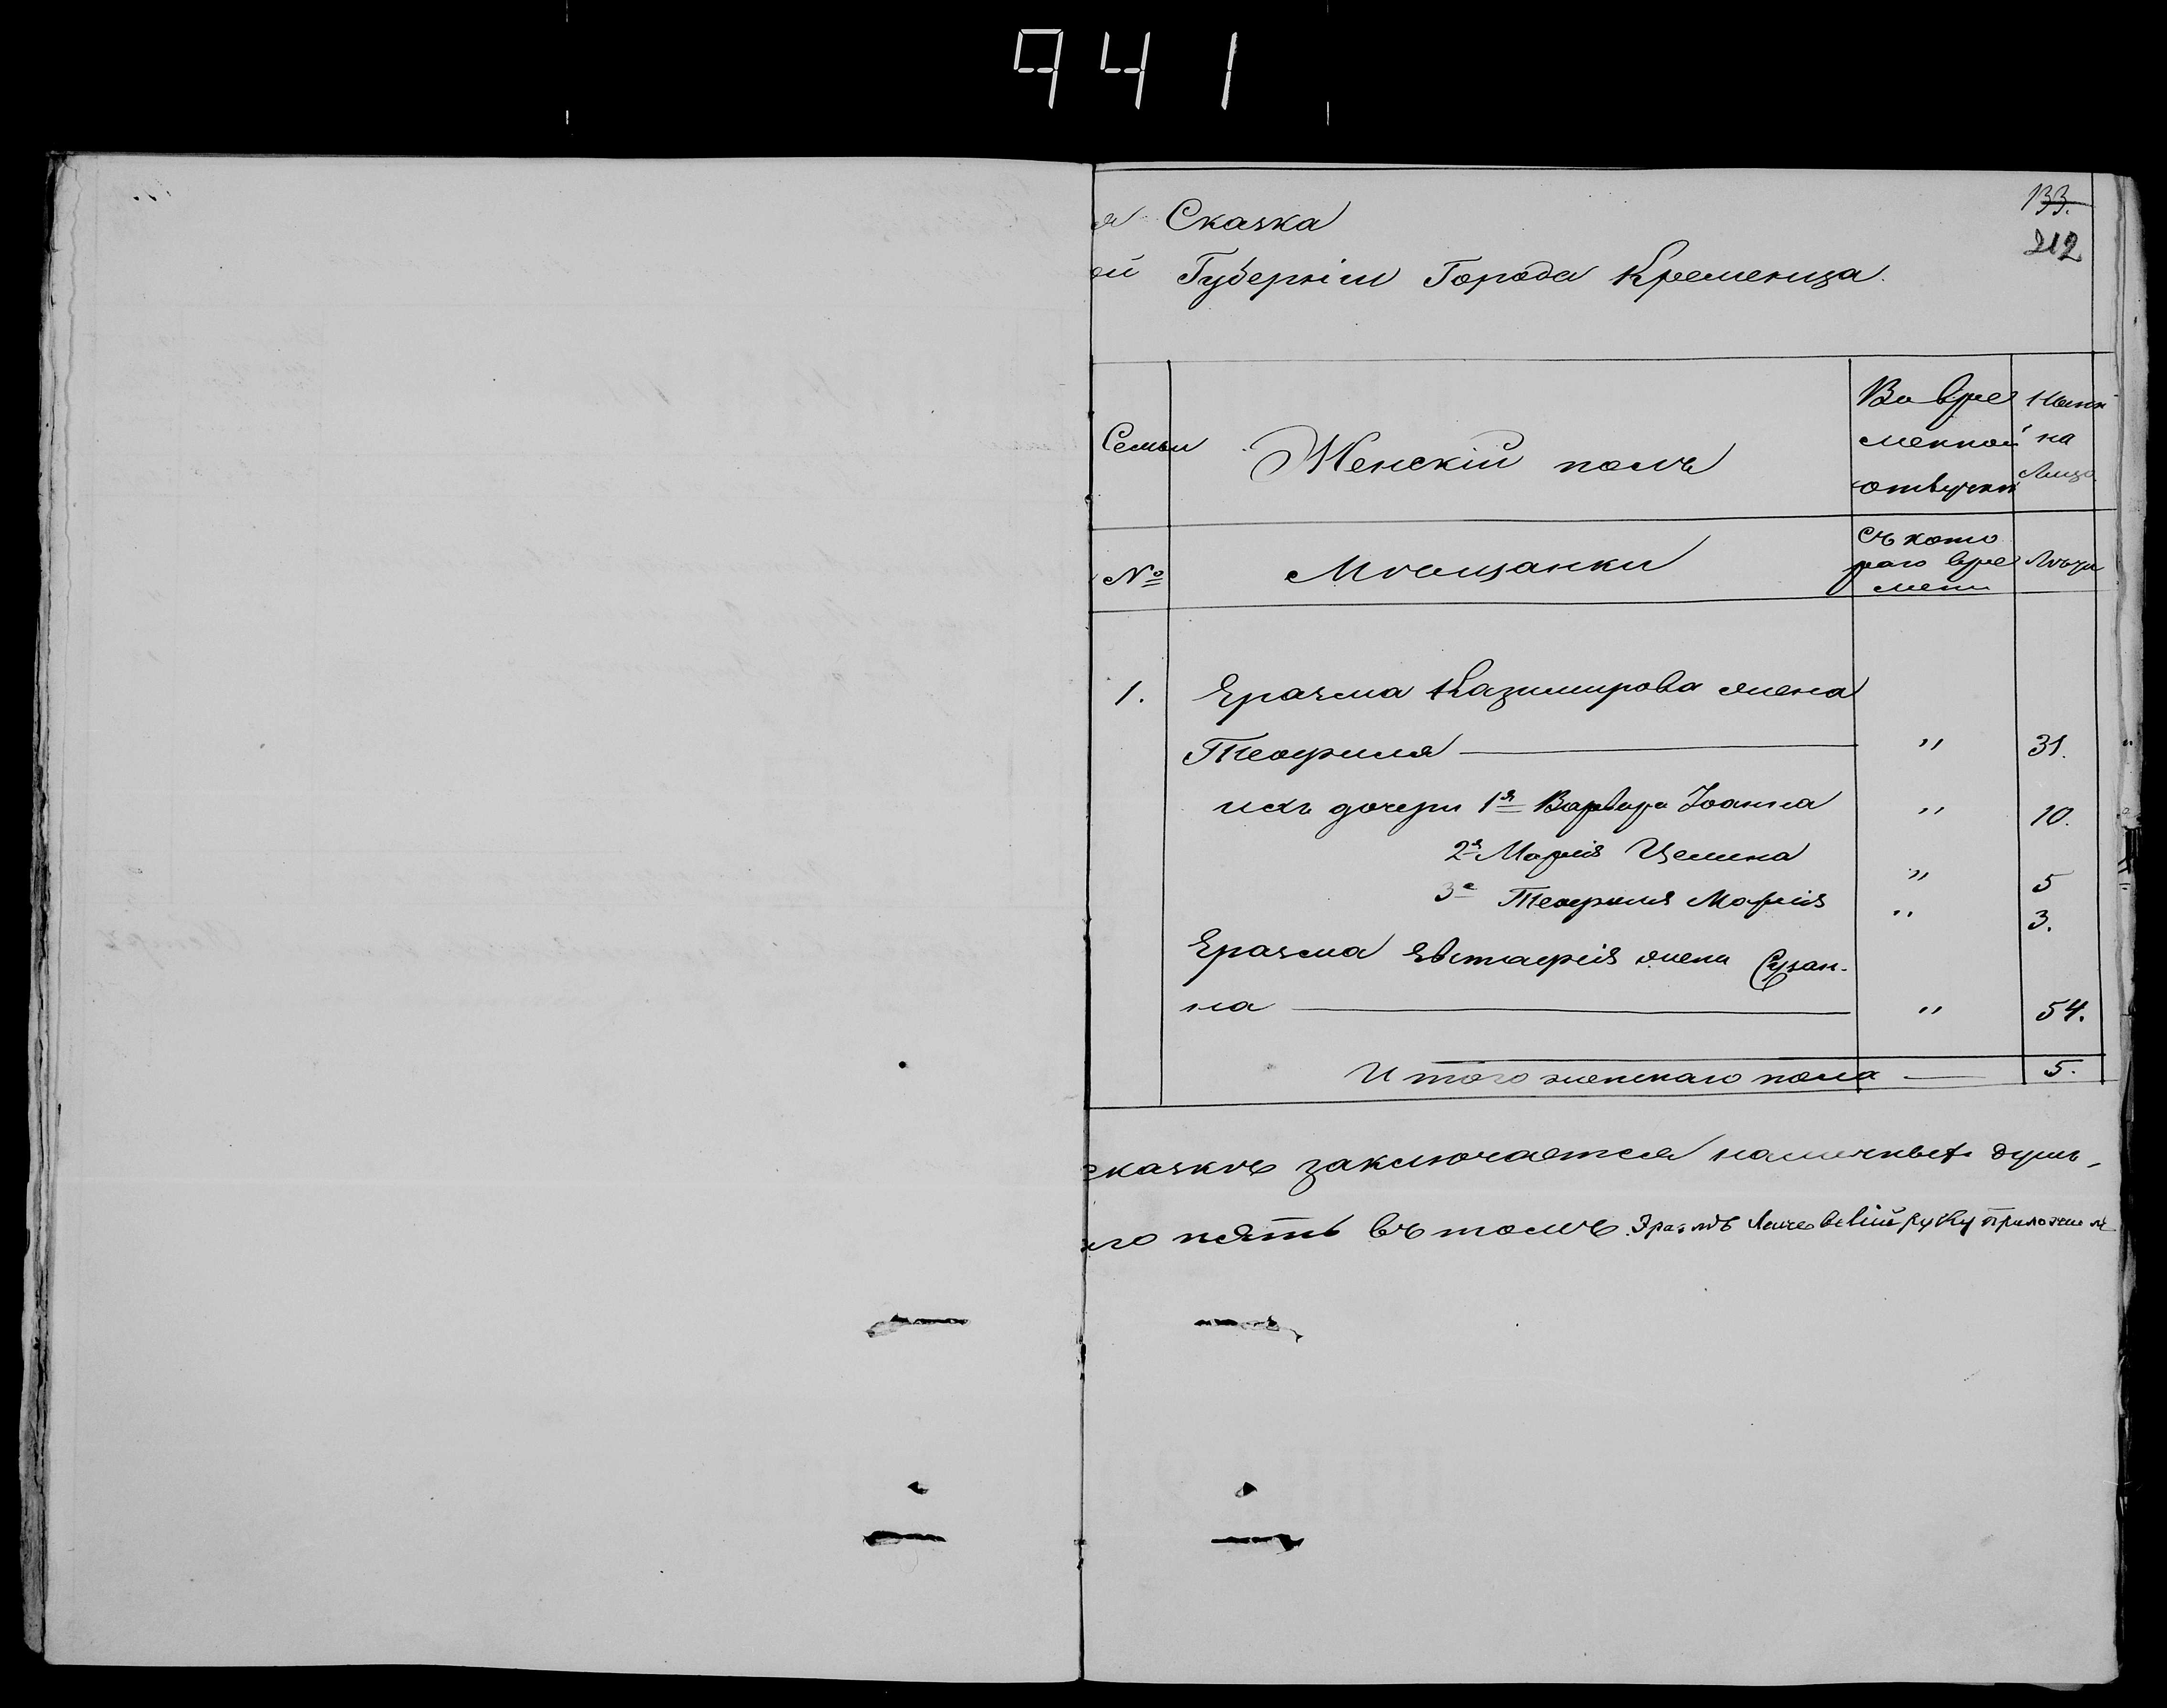 941
133.
212
я Сказка
ой Губернiи Города Кременца.
Семьи
Женскiй полъ
Во вре
менной
отлучки
Нынѣ
на
Лицо
№
Мѣщанки
Съ кото
раго вре
мени
Лѣта
1. Еразма Казимирова жена
Теофиля " 31.
ихъ дочери 1я Варвара Iоанна " 10.
2я Марiя Целина " 5
3я Теофиля Марiя " 3.
Еразма Евстафiя жена Сузан-
на " 54.
Итого женскаго пола 5.
сказкѣ заключается наличныхъ душъ,
го пять въ томъ. Эразмъ руку приложилъ